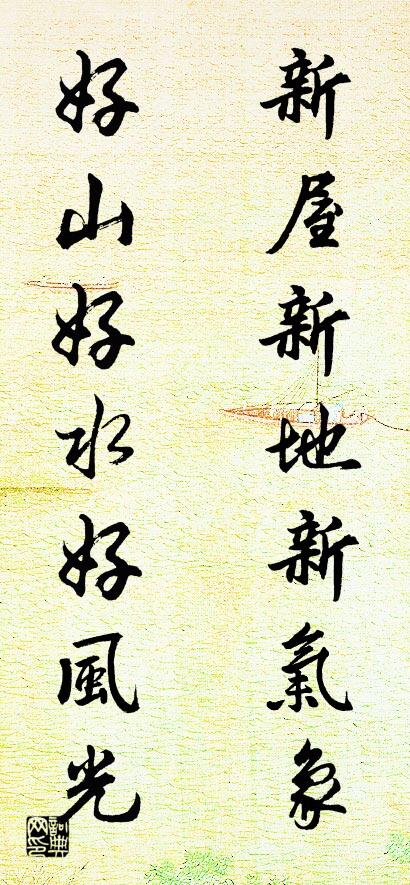 新屋新地新氣象
好山好水好風光